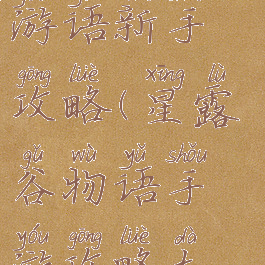 游语新手
gōng lüè xīng lù
攻略(星露
gǔ wù yǔ shǒu
谷物语手
yóu gōng lüè dà
游攻略大